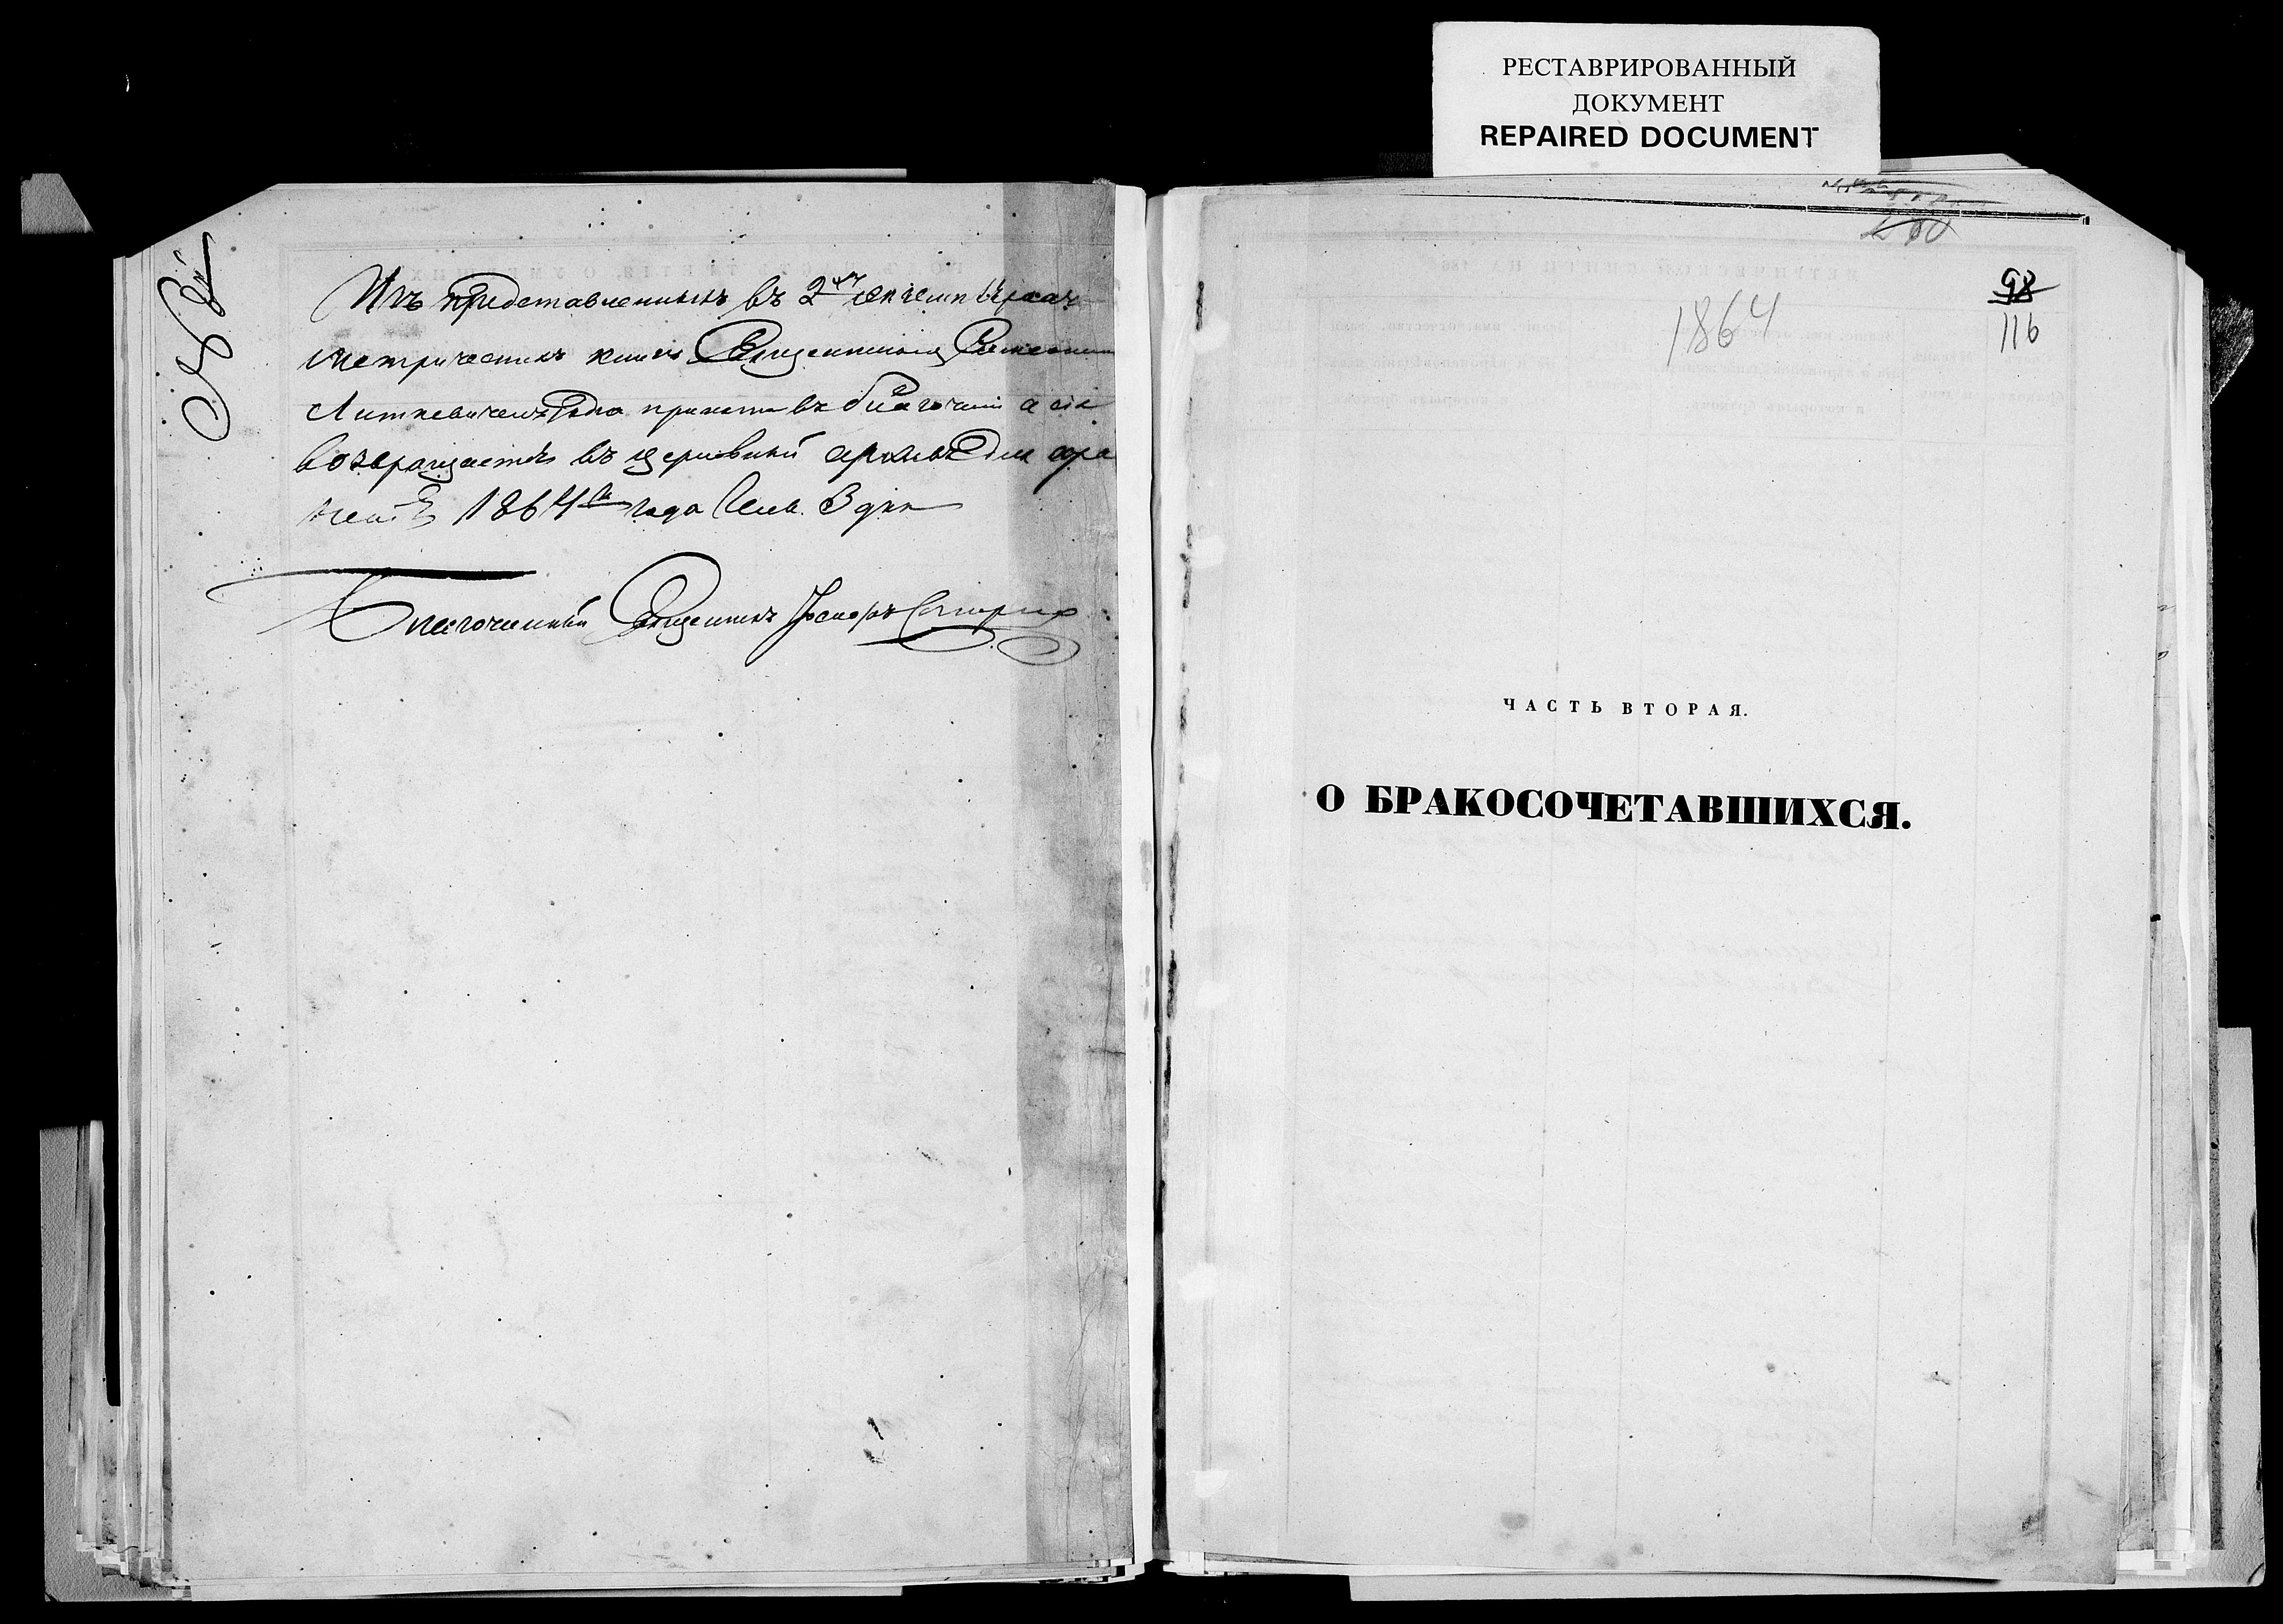 РЕСТАВРИРОВАННЫЙ
ДОКУМЕНТ
REPAIRED DOCUMENT
Изъ представленныхъ въ 2хъ екземплярахъ
метрическихъ книгъ Священникомъ
Литкевичемъ одна принята въ благочиніе а сія
возвращается въ церковный архивъ для хра
ненія 1864го года Генв. 3 дня
Благочинный Священникъ Іосифъ
1864
98
116
ЧАСТЬ ВТОРАЯ.
О БРАКОСОЧЕТАВШИХСЯ.